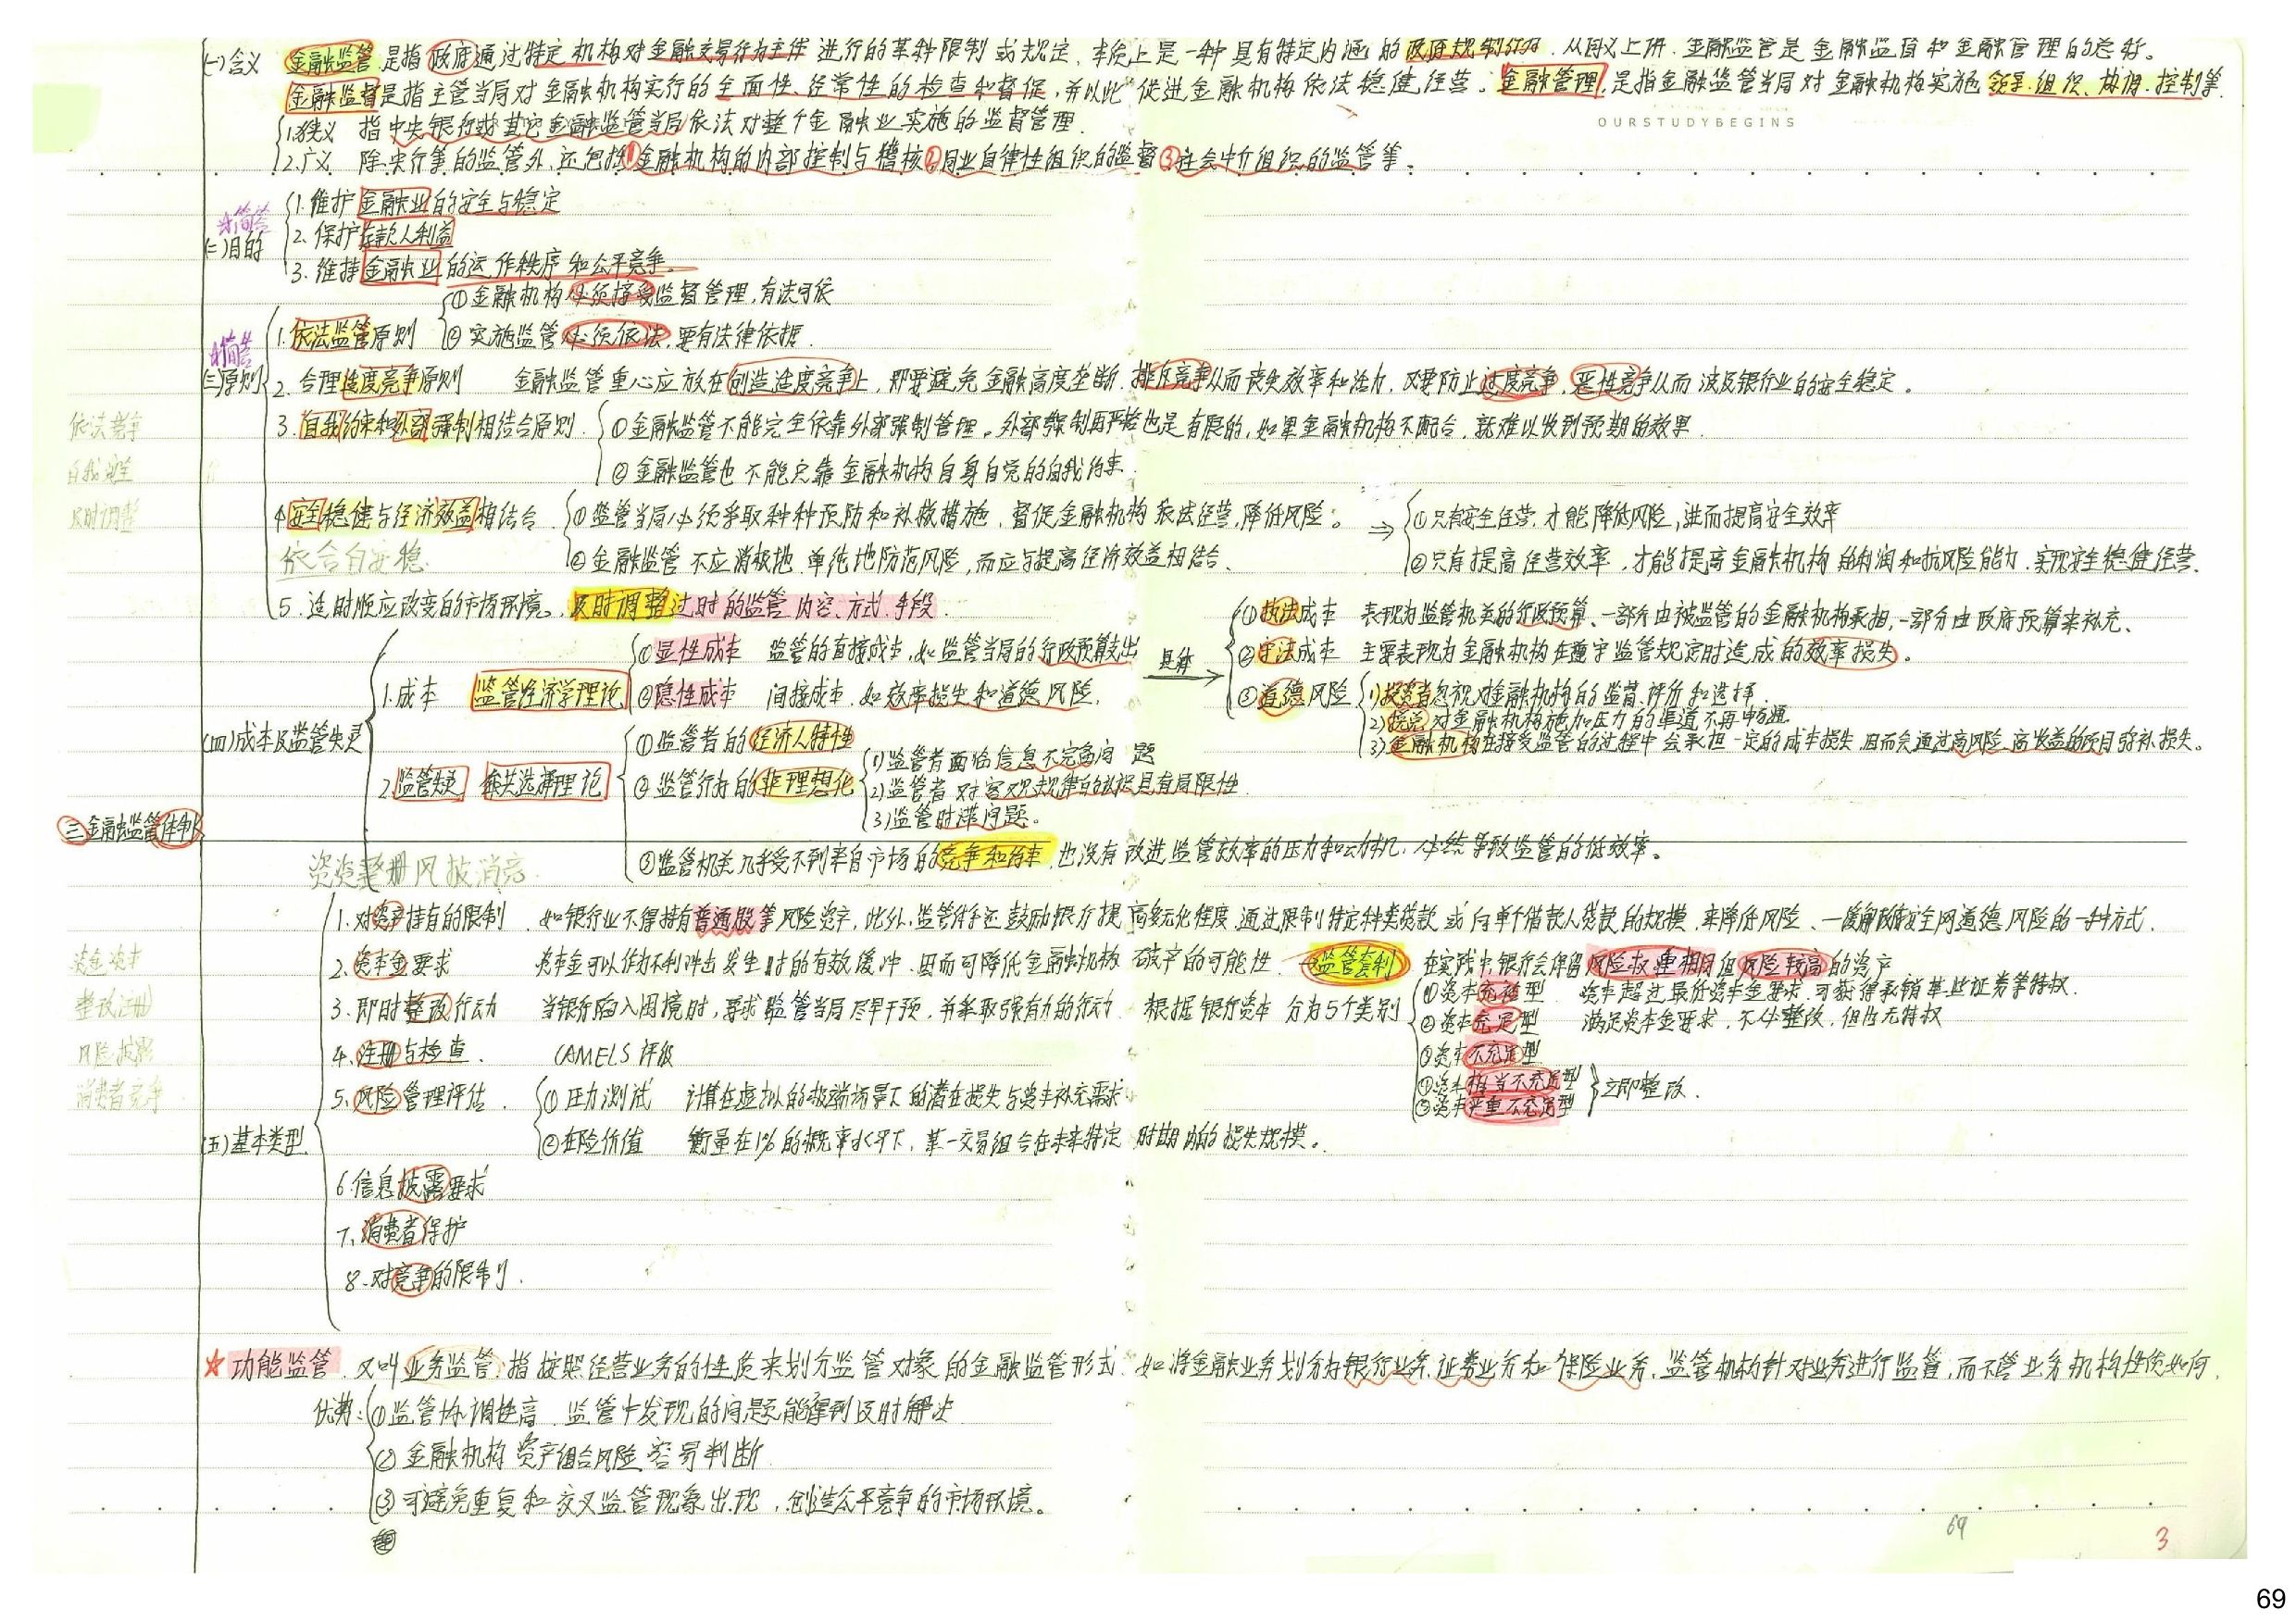 (一)含义 金融监管是指政府通过特定机构对金融交易行为主体进行的某种限制或规定,本质上是一种具有特定内涵的政府规制行为.从词义上讲,金融监管是金融监督和金融管理的总称。
金融监督是指主管当局对金融机构实行的全面性、经常性的检查和督促,并以此促进金融机构依法稳健经营。金融管理,是指金融监管当局对金融机构实施领导、组织、协调、控制等.
OURSTUDYBEGINS
1.狭义 指中央银行或其它金融监管当局依法对整个金融业实施的监督管理.
2.广义 除央行等的监管外,还包括①金融机构的内部控制与稽核②同业自律性组织的监督③社会中介组织的监管等。
☆简答
(二)目的
1.维护金融业的安全与稳定
2.保护存款人利益
3.维持金融业的运作秩序和公平竞争。
☆简答
(三)原则
1.依法监管原则
①金融机构必须接受监督管理,有法可依
②实施监管必须依法,要有法律依据.
2.合理适度竞争原则 金融监管重心应放在创造适度竞争上,即要避免金融高度垄断,排斥竞争从而丧失效率和活力,又要防止过度竞争,恶性竞争从而波及银行业的安全稳定。
3.自我约束和外部强制相结合原则.
①金融监管不能完全依靠外部强制管理。外部强制再严格也是有限的,如果金融机构不配合,就难以收到预期的效果
②金融监管也不能只靠金融机构自身自觉的自我约束.
依法竞争
自我安全
及时调整
4.安全稳健与经济效益相结合
①监管当局必须采取种种预防和补救措施,督促金融机构依法经营,降低风险;
②金融监管不应消极地、单纯地防范风险,而应与提高经济效益相结合、
⇒ ①只有安全经营,才能降低风险,进而提高安全效率
②只有提高经营效率,才能提高金融机构的利润和抗风险能力,实现安全稳健经营.
依合自安稳
5.适时顺应改变的市场环境。及时调整过时的监管内容、方式、手段.
(四)成本及监管失灵
1.成本 监管经济学理论
①显性成本 监管的直接成本,如监管当局的行政预算支出
②隐性成本 间接成本,如效率损失和道德风险.
具体→
①执法成本 表现为监管机关的行政预算、一部分由被监管的金融机构承担,一部分由政府预算来补充、
②守法成本 主要表现为金融机构在遵守监管规定时造成的效率损失。
③道德风险
1)投资者忽视对金融机构的监督、评价和选择.
2)投资者对金融机构施加压力的渠道不再畅通.
3)金融机构在接受监管的过程中会承担一定的成本损失,因而会通过高风险、高收益的项目弥补损失。
2.监管失灵 公共选择理论
①监管者的经济人特性
②监管行为的非理想化
1)监管者面临信息不完备问题
2)监管者对客观规律的认识具有局限性
3)监管时滞问题。
③监管机关几乎受不到来自市场的竞争和约束,也没有改进监管效率的压力和动机,必然导致监管的低效率。
三金融监管体制
资资整册风披消竞
(五)基本类型
1.对资产持有的限制 如银行业不得持有普通股等风险资产,此外,监管伴手还鼓励银行提高多元化程度,通过限制特定种类贷款或向单个借款人贷款的规模,来降低风险、—缓解政府安全网道德风险的一种方式.
2.资本金要求 资本金可以作为不利冲击发生时的有效缓冲,因而可降低金融机构破产的可能性. →监管套利 在实践中,银行会保留风险权重相同但风险较高的资产
3.即时整改行动 当银行陷入困境时,要求监管当局尽早干预,并采取强有力的行动. 根据银行资本分为5个类别
①资本充裕型 资本超过最低资本金要求,可获得承销某些证券等特权.
②资本充足型 满足资本金要求,不必整改,但也无特权
③资本不充足型
④资本相当不充足型
⑤资本严重不充足型
立即整改.
资金资本
整改注册
风险披露
消费者竞争
4.注册与检查. CAMELS评级
5.风险管理评估.
①压力测试 计算在虚拟的极端场景下的潜在损失与资本补充需求.
②在险价值 衡量在1%的概率水平下,某一交易组合在未来特定时期内的损失规模。
6.信息披露要求
7.消费者保护
8.对竞争的限制.
☆功能监管.又叫业务监管:指按照经营业务的性质来划分监管对象的金融监管形式.如将金融业务划分为银行业务,证券业务和保险业务,监管机构针对业务进行监管,而不管业务机构性质如何.
优势:①监管协调性高.监管中发现的问题能得到及时解决
②金融机构资产组合风险容易判断
③可避免重复和交叉监管现象出现,创造公平竞争的市场环境。
69
3
69